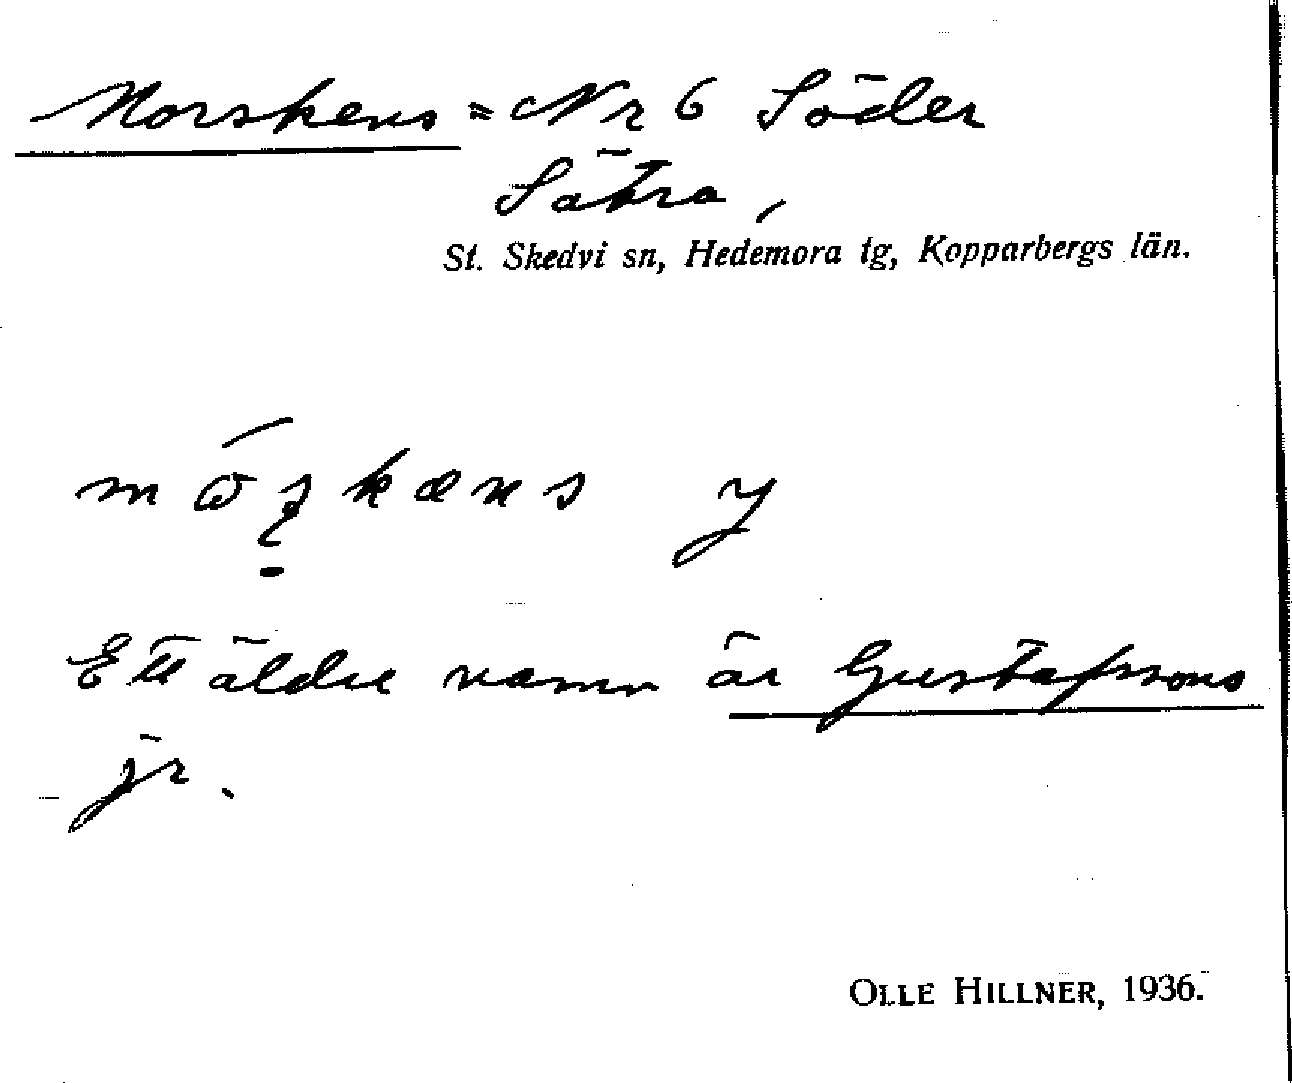 Morskens = Nr 6 Söder
Sätra,
St. Skedvi sn, Hedemora tg, Kopparbergs län.
Ett äldre namn är Gustafssons
jr.
OLLE HILLNER, 1936.